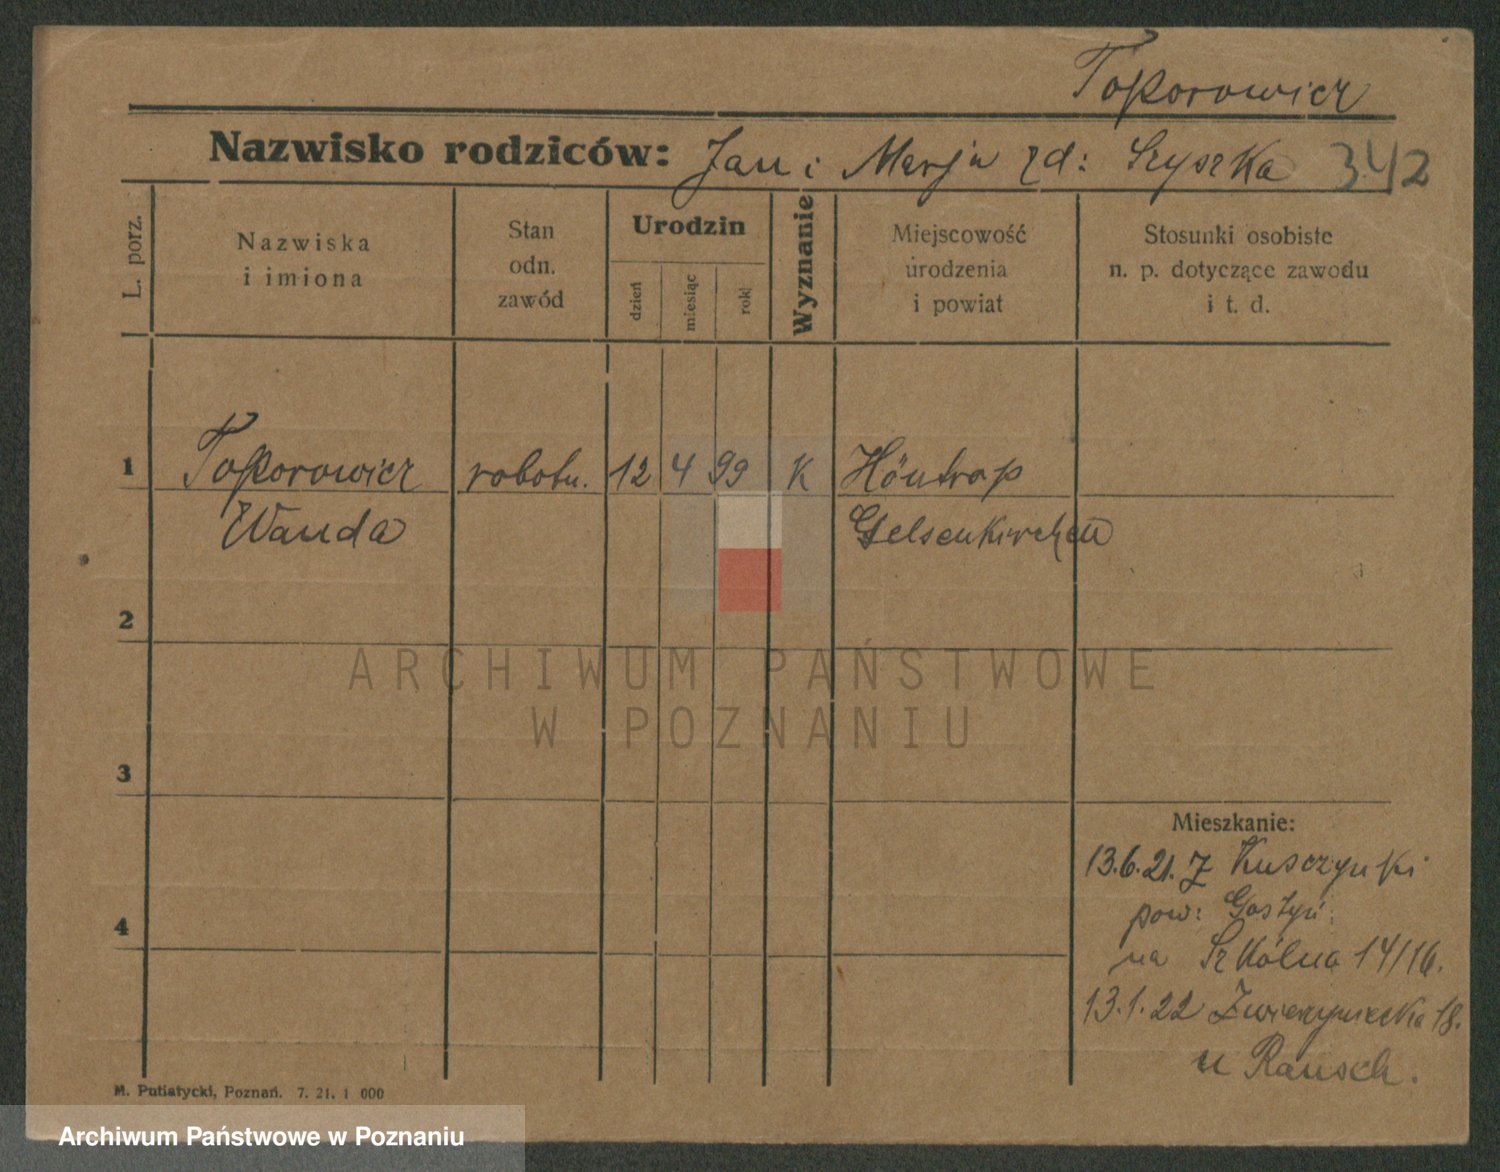 Toporowicz
Nazwisko rodziców: Jan i Marja zd: Szyszka 342
L. porz.
Nazwiska i imiona
Stan odn. zawód
Urodzin
dzień miesiąc rok
Wyznanie
Miejscowość urodzenia i powiat
Stosunki osobiste n. p. dotyczące zawodu i t. d.
1 Toporowicz robotn. 12 4 99 K Höntrop
Wanda Gelsenkirchen
2
ARCHIWUM PAŃSTWOWE
W POZNANIU
3
Mieszkanie:
13.6.21. Z
pow: Gostyń.
4
na Szkólna 14/16.
13.1.22 Zwierzyniecka 18.
u Rausch.
M. Putiatycki, Poznań. 7. 21. 1 000
Archiwum Państwowe w Poznaniu